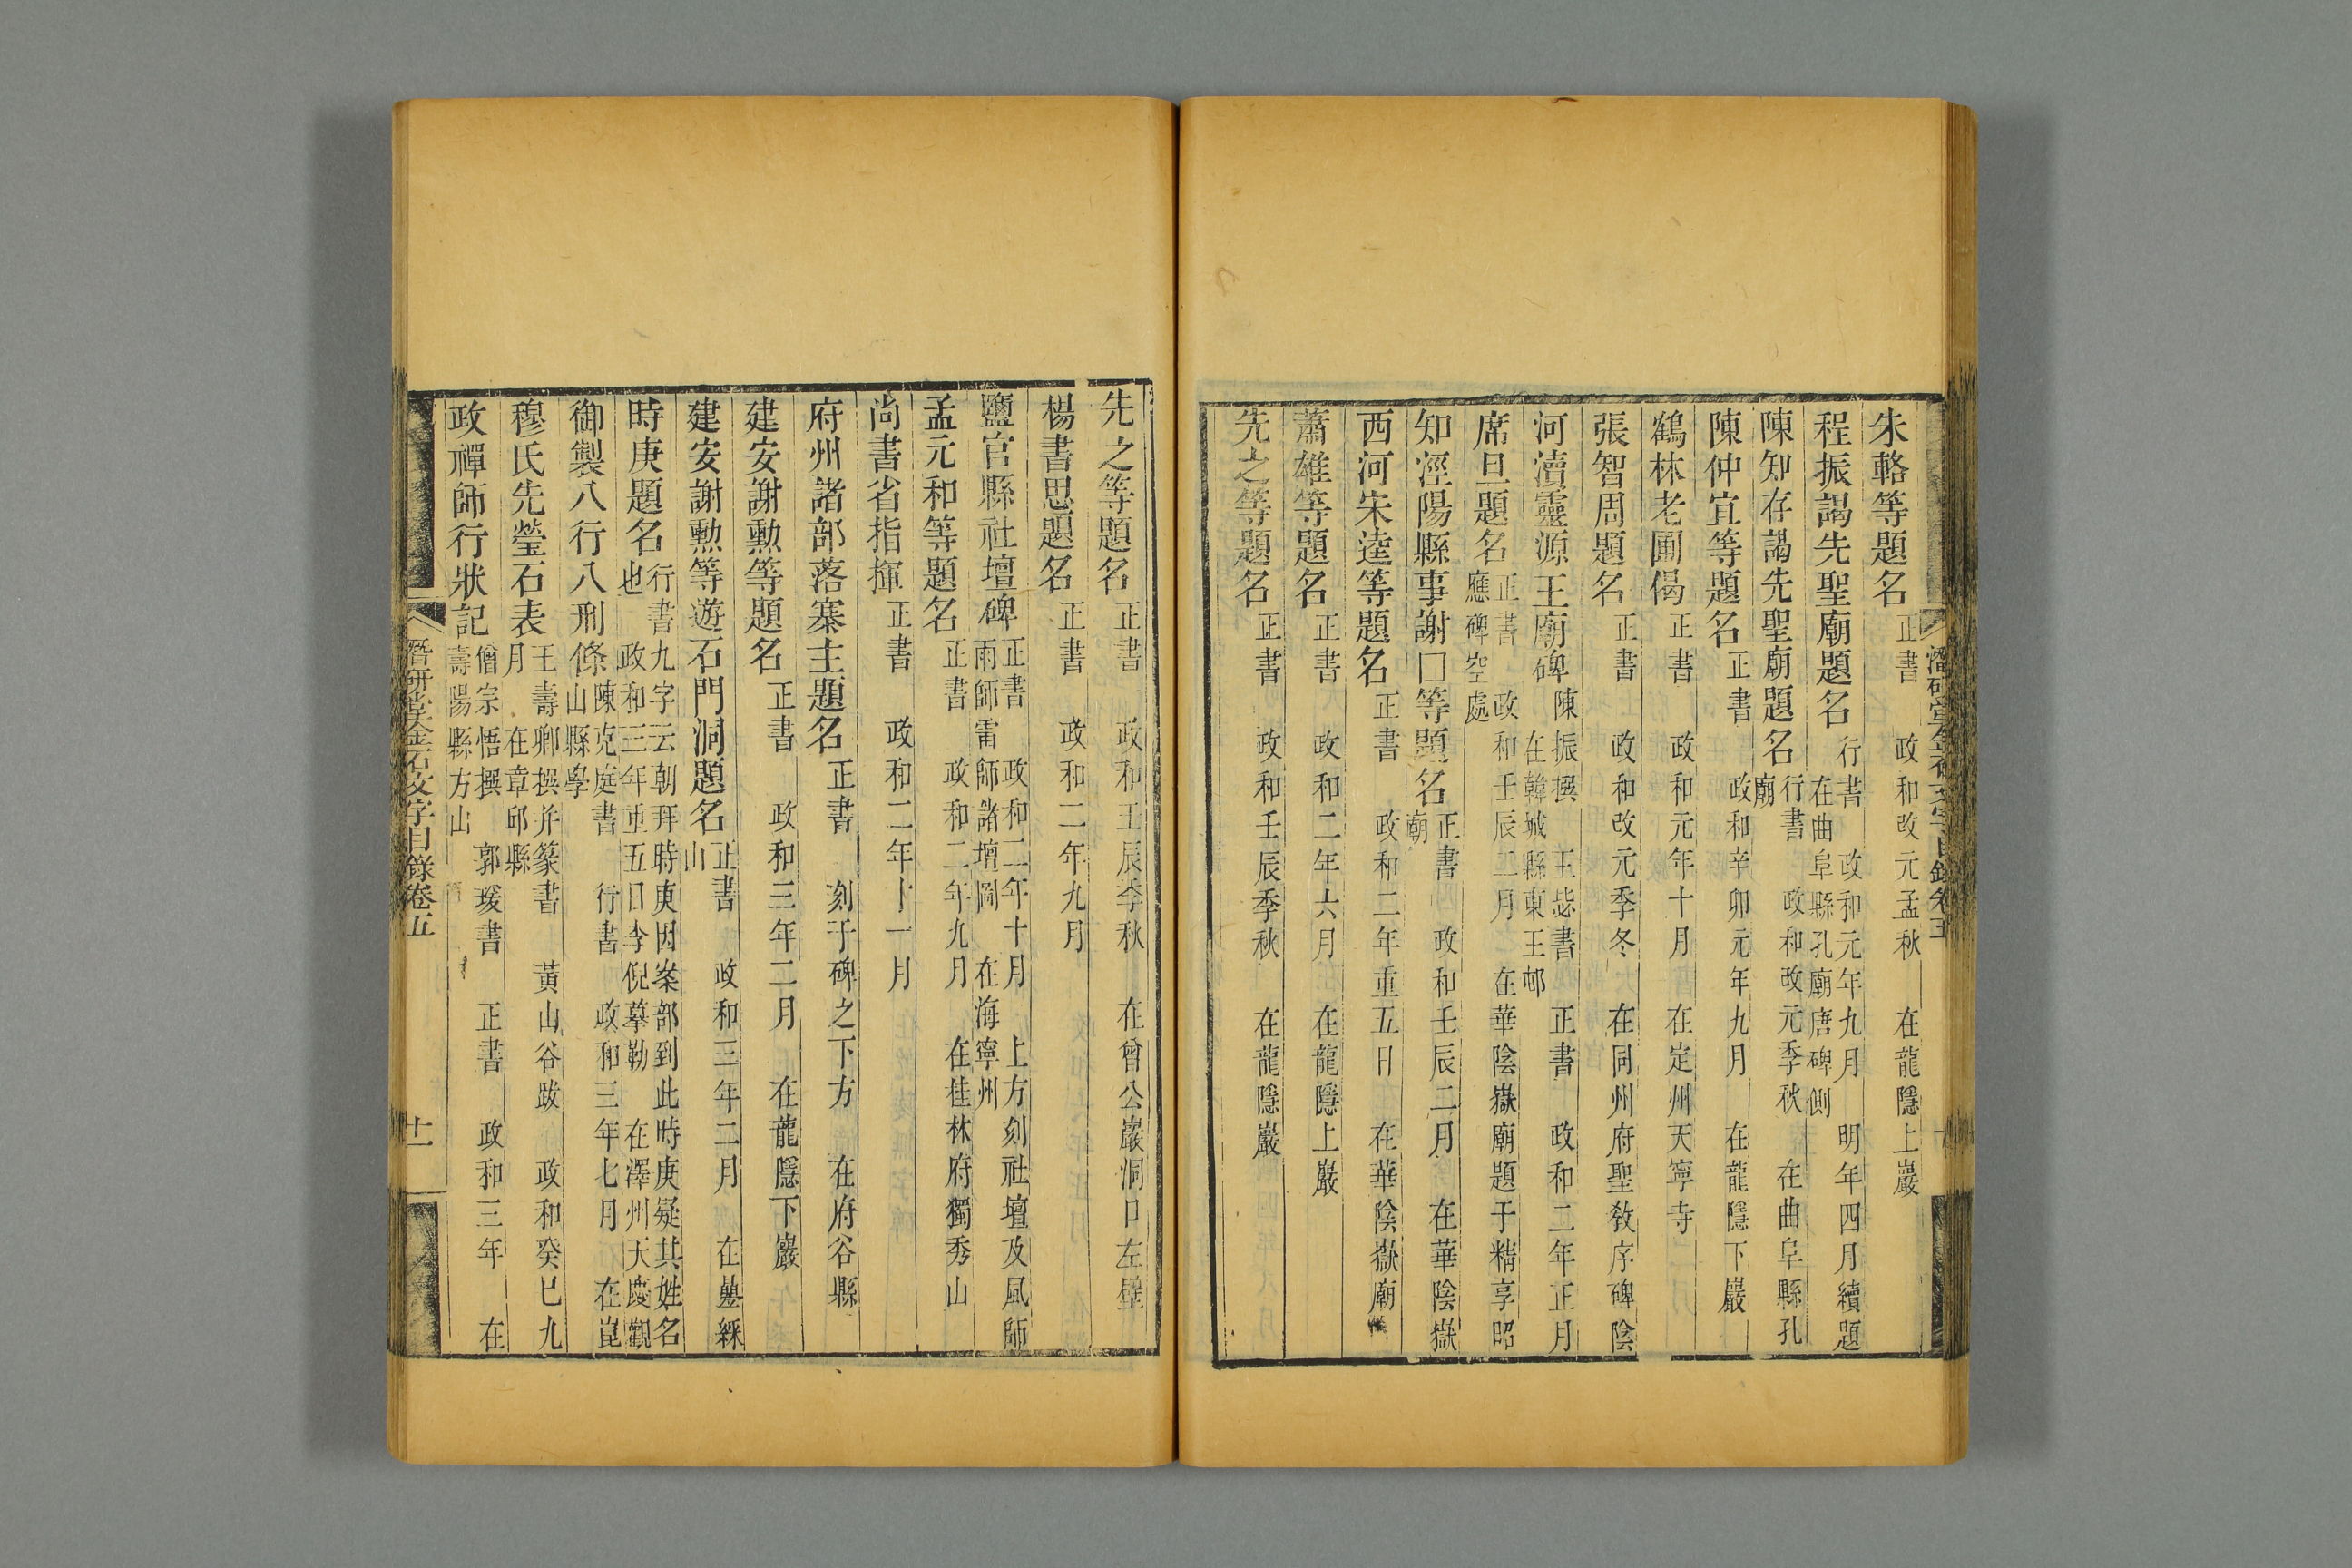 朱輅等題名 正書 政和改元孟秋 在龍隱上巖
程振謁先聖廟題名 行書 政和元年九月 明年四月續題
在曲阜縣孔廟唐碑側
陳知存謁先聖廟題名 行書 政和改元季秋 在曲阜縣孔
廟
陳仲宜等題名 正書 政和辛卯元年九月 在龍隱下巖
鶴林老圃偈 正書 政和元年十月 在定州天寧寺
張智周題名 正書 政和改元季冬 在同州府聖敎序碑陰
河瀆靈源王廟碑 陳振撰 王毖書 正書 政和二年正月
在韓城縣東王邨
席旦題名 正書 政和壬辰二月 在華陰嶽廟題于精享昭
應碑空處
知涇陽縣事謝囗等題名 正書 政和壬辰二月 在華陰嶽
廟
西河宋逵等題名 正書 政和二年重五日 在華陰嶽廟
蕭雄等題名 正書 政和二年六月 在龍隱上巖
先之等題名 正書 政和壬辰季秋 在龍隱巖
先之等題名 正書 政和壬辰季秋 在曾公巖洞口左壁
楊書思題名 正書 政和二年九月
鹽官縣社壇碑 正書 政和二年十月 上方刻社壇及風師
雨師雷師諸壇圖 在海寧州
孟元和等題名 正書 政和二年九月 在桂林府獨秀山
尚書省指揮 正書 政和二年十一月
府州諸部落寨主題名 正書 刻于碑之下方 在府谷縣
建安謝勳等題名 正書 政和三年二月 在龍隱下巖
建安謝勳等遊石門洞題名 正書 政和三年二月 在疊綵
山
時庚題名 行書九字云朝拜時庚因案部到此時庚疑其姓名
也 政和三年重五日李倪摹勒 在澤州天慶觀
御製八行八刑條 陳克庭書 行書 政和三年七月 在崑
山縣學
穆氏先塋石表 王壽卿撰并篆書 黃山谷跋 政和癸巳九
月 在章邱縣
政禪師行狀記 僧宗悟撰 郭瑗書 正書 政和三年 在
壽陽縣方山
潛研堂金石文字目錄卷五 十一